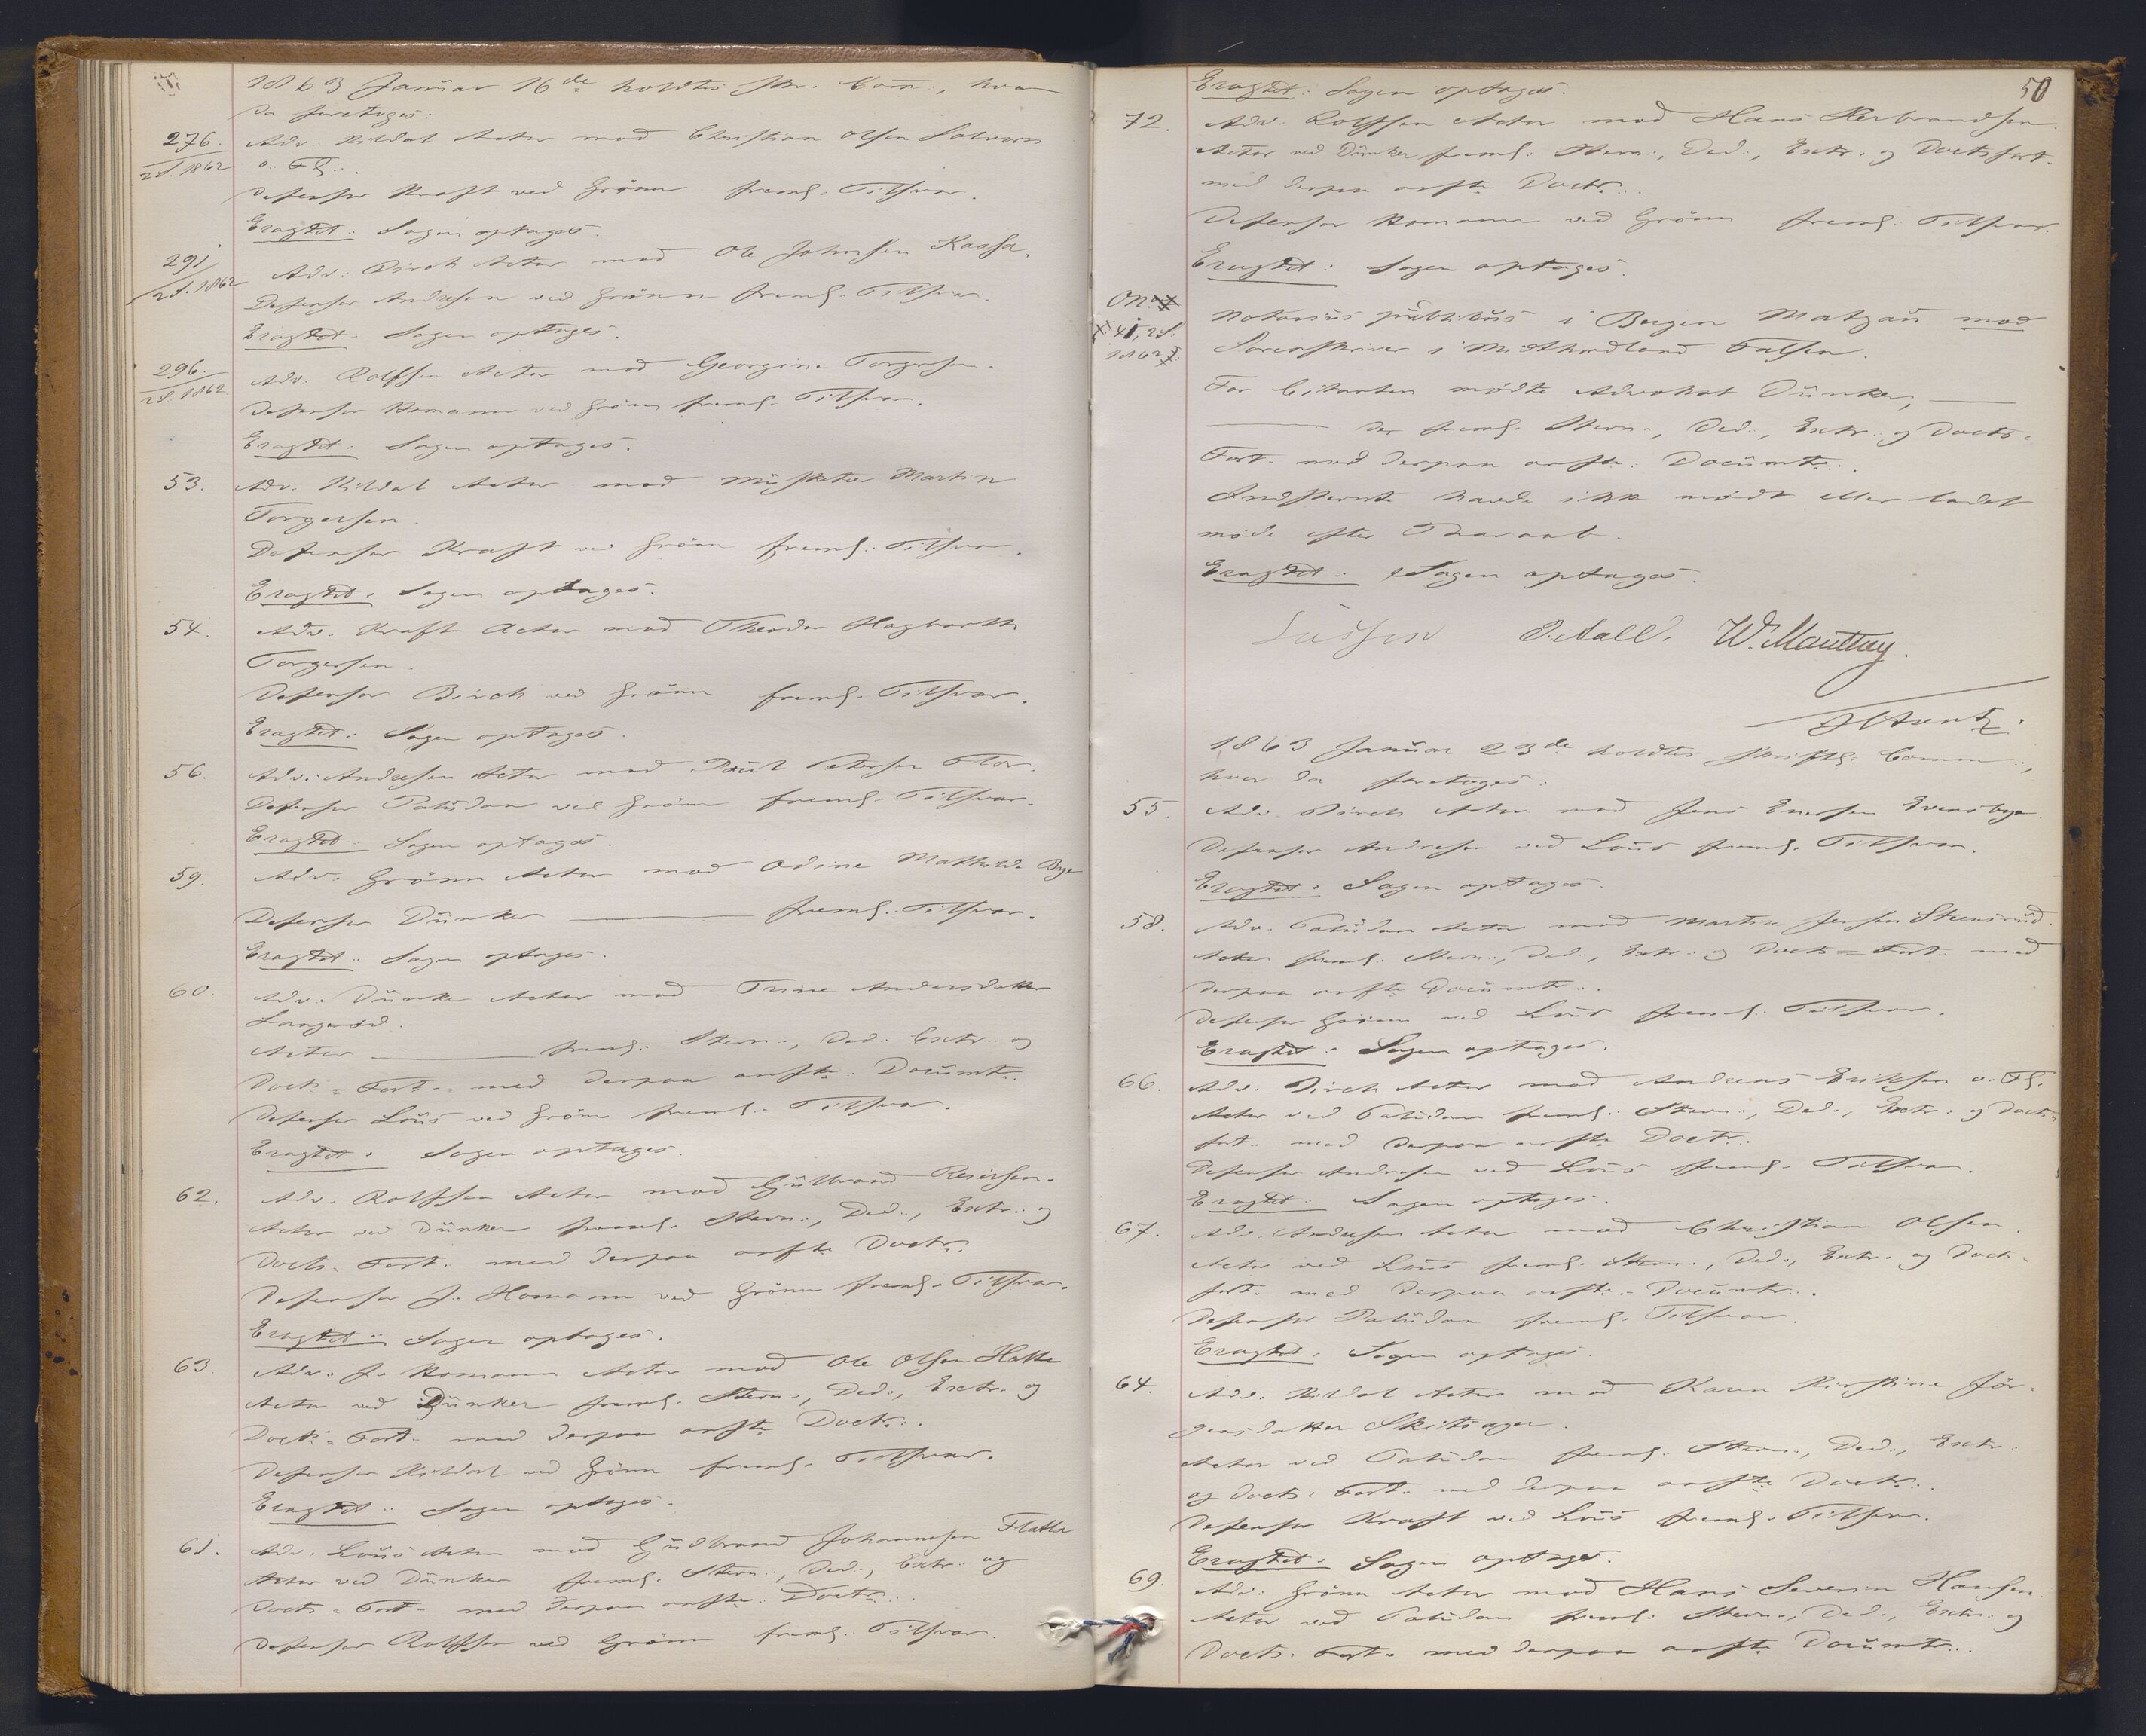 1863 Januar 16de holdtes skr. Com., hvor
da foretoges:
276.
2 S. 1862
Adv. Kildal Actor mod Christian Olsen
a. Fl.
Defensor Kraft ved Grönn freml. Tilsvar.
Eragtet: Sagen optages.
291
2 S. 1862
Adv. Birch Actor mod Ole Johnsen Kaasa.
Defensor Andresen ved Grönn freml. Tilsvar.
Eragtet: Sagen optages.
296.
2 S. 1862
Adv. Rolfsen Actor mod Georgine Torgersen.
Defensor Homann ved Grönn freml. Tilsvar.
Eragtet: Sagen optages.
53.
Adv. Kildal Actor mod Musketeer Martin
Torgersen.
Defensor Kraft ved Grönn freml. Tilsvar.
Eragtet: Sagen optages.
54.
Adv. Kraft Actor mod Theodor Hagbarth
Torgersen.
Defensor Birch ved Grönn freml. Tilsvar.
Eragtet: Sagen optages.
56.
Adv. Andresen Actor mod Poul Petersen Flor.
Defensor Paludan ved Grönn freml. Tilsvar.
Eragtet: Sagen optages.
59.
Adv. Grönn Actor mod Odine Mathilde Bye
Defensor Dunker freml. Tilsvar.
Eragtet: Sagen optages.
60.
Adv. Dunker Actor mod Trine Andersdatter
Langeröd.
Actor freml. Stevn., Ded., Extr. og
Docts.-Fort. med derpaa anfte. Documtr.
Defensor Lous ved Grönn freml. Tilsvar.
Eragtet: Sagen optages.
62.
Adv. Rolfsen Actor mod Gulbrand Reiersen.
Actor ved Dunker freml. Stevn., Ded., Extr. og
Docts.-Fort. med derpaa anfte. Doctr.
Defensor J. Homann ved Grönn freml. Tilsvar.
Eragtet: Sagen optages.
63.
Adv. J. Homann Actor mod Ole Olsen
Actor ved Dunker freml. Stevn., Ded., Extr. og
Docts.-Fort. med derpaa anfte. Doctr.
Defensor Kildal ved Grönn freml. Tilsvar.
Eragtet: Sagen optages.
61.
Adv. Lous Actor mod Gudbrand Johannesen
Actor ved Dunker freml. Stevn., Ded., Extr. og
Docts.-Fort. med derpaa anfte. Doctr.
Defensor Rolfsen ved Grönn freml. Tilsvar.
50
Eragtet: Sagen optages.
72.
Adv. Rolfsen Actor mod Hans Herbrandsen.
Actor ved Dunker freml. Stevn., Ded., Extr. og Docts fort.
med derpaa anfte Doctr.
Defensor Homann ved Grönn freml. Tilsvar.
Eragtet: Sagen optages.
Notarius publicus i Bergen mod
Sorenskriver i Midthordland Falsen.
For Citanten mödte Advokat Dunker,
der freml. Stevn., Ded., Extr. og Docts-
Fort. med derpaa anfte. Documtr.
Indstevnte havde ikke mödt eller ladet
möde efter Paaraab.
Eragtet: Sagen optages.
Lasson W. Manthey.
1863 Januar 23de holdtes skriftl. Comm.,
hvor da foretoges:
55.
Adv. Birch Actor mod Jens Enersen Evensbye.
Defensor Andresen ved Lous freml. Tilsvar.
Eragtet: Sagen optages.
58.
Adv. Paludan Actor mod Martin Jensen Steensrud.
Actor freml. Stevn., Ded., Extr. og Docts-Fort. med
derpaa anfte Documtr.
Defensor Grönn ved Lous freml. Tilsvar.
Eragtet: Sagen optages.
66.
Adv. Birch Actor mod Andreas Eriksen a. Fl.
Actor ved Paludan freml. Stevn., Ded., Extr. og Docts-
fort. med derpaa anfte Doctr.
Defensor Andresen ved Lous freml. Tilsvar.
Eragtet: Sagen optages.
67.
Adv. Andresen Actor mod Christian Olsen.
Actor ved Lous freml. Stevn., Ded., Extr. og Docts-
fort. med derpaa anfte. Documtr.
Defensor Paludan freml. Tilsvar.
Eragtet: Sagen optages.
64.
Adv. Kildal Actor mod Karen Kirstine Jör-
gensdatter
Actor ved Paludan freml. Stevn., Ded., Extr.
og Docts.-Fort. med derpaa anfte Doctr.
Defensor Kraft ved Lous freml. Tilsvar.
Eragtet: Sagen optages.
69.
Adv. Grönn Actor mod Hans Severin Hansen.
Actor ved Paludan freml. Stevn., Ded., Extr. og
Docts.-Fort. med derpaa anfte Documtr.